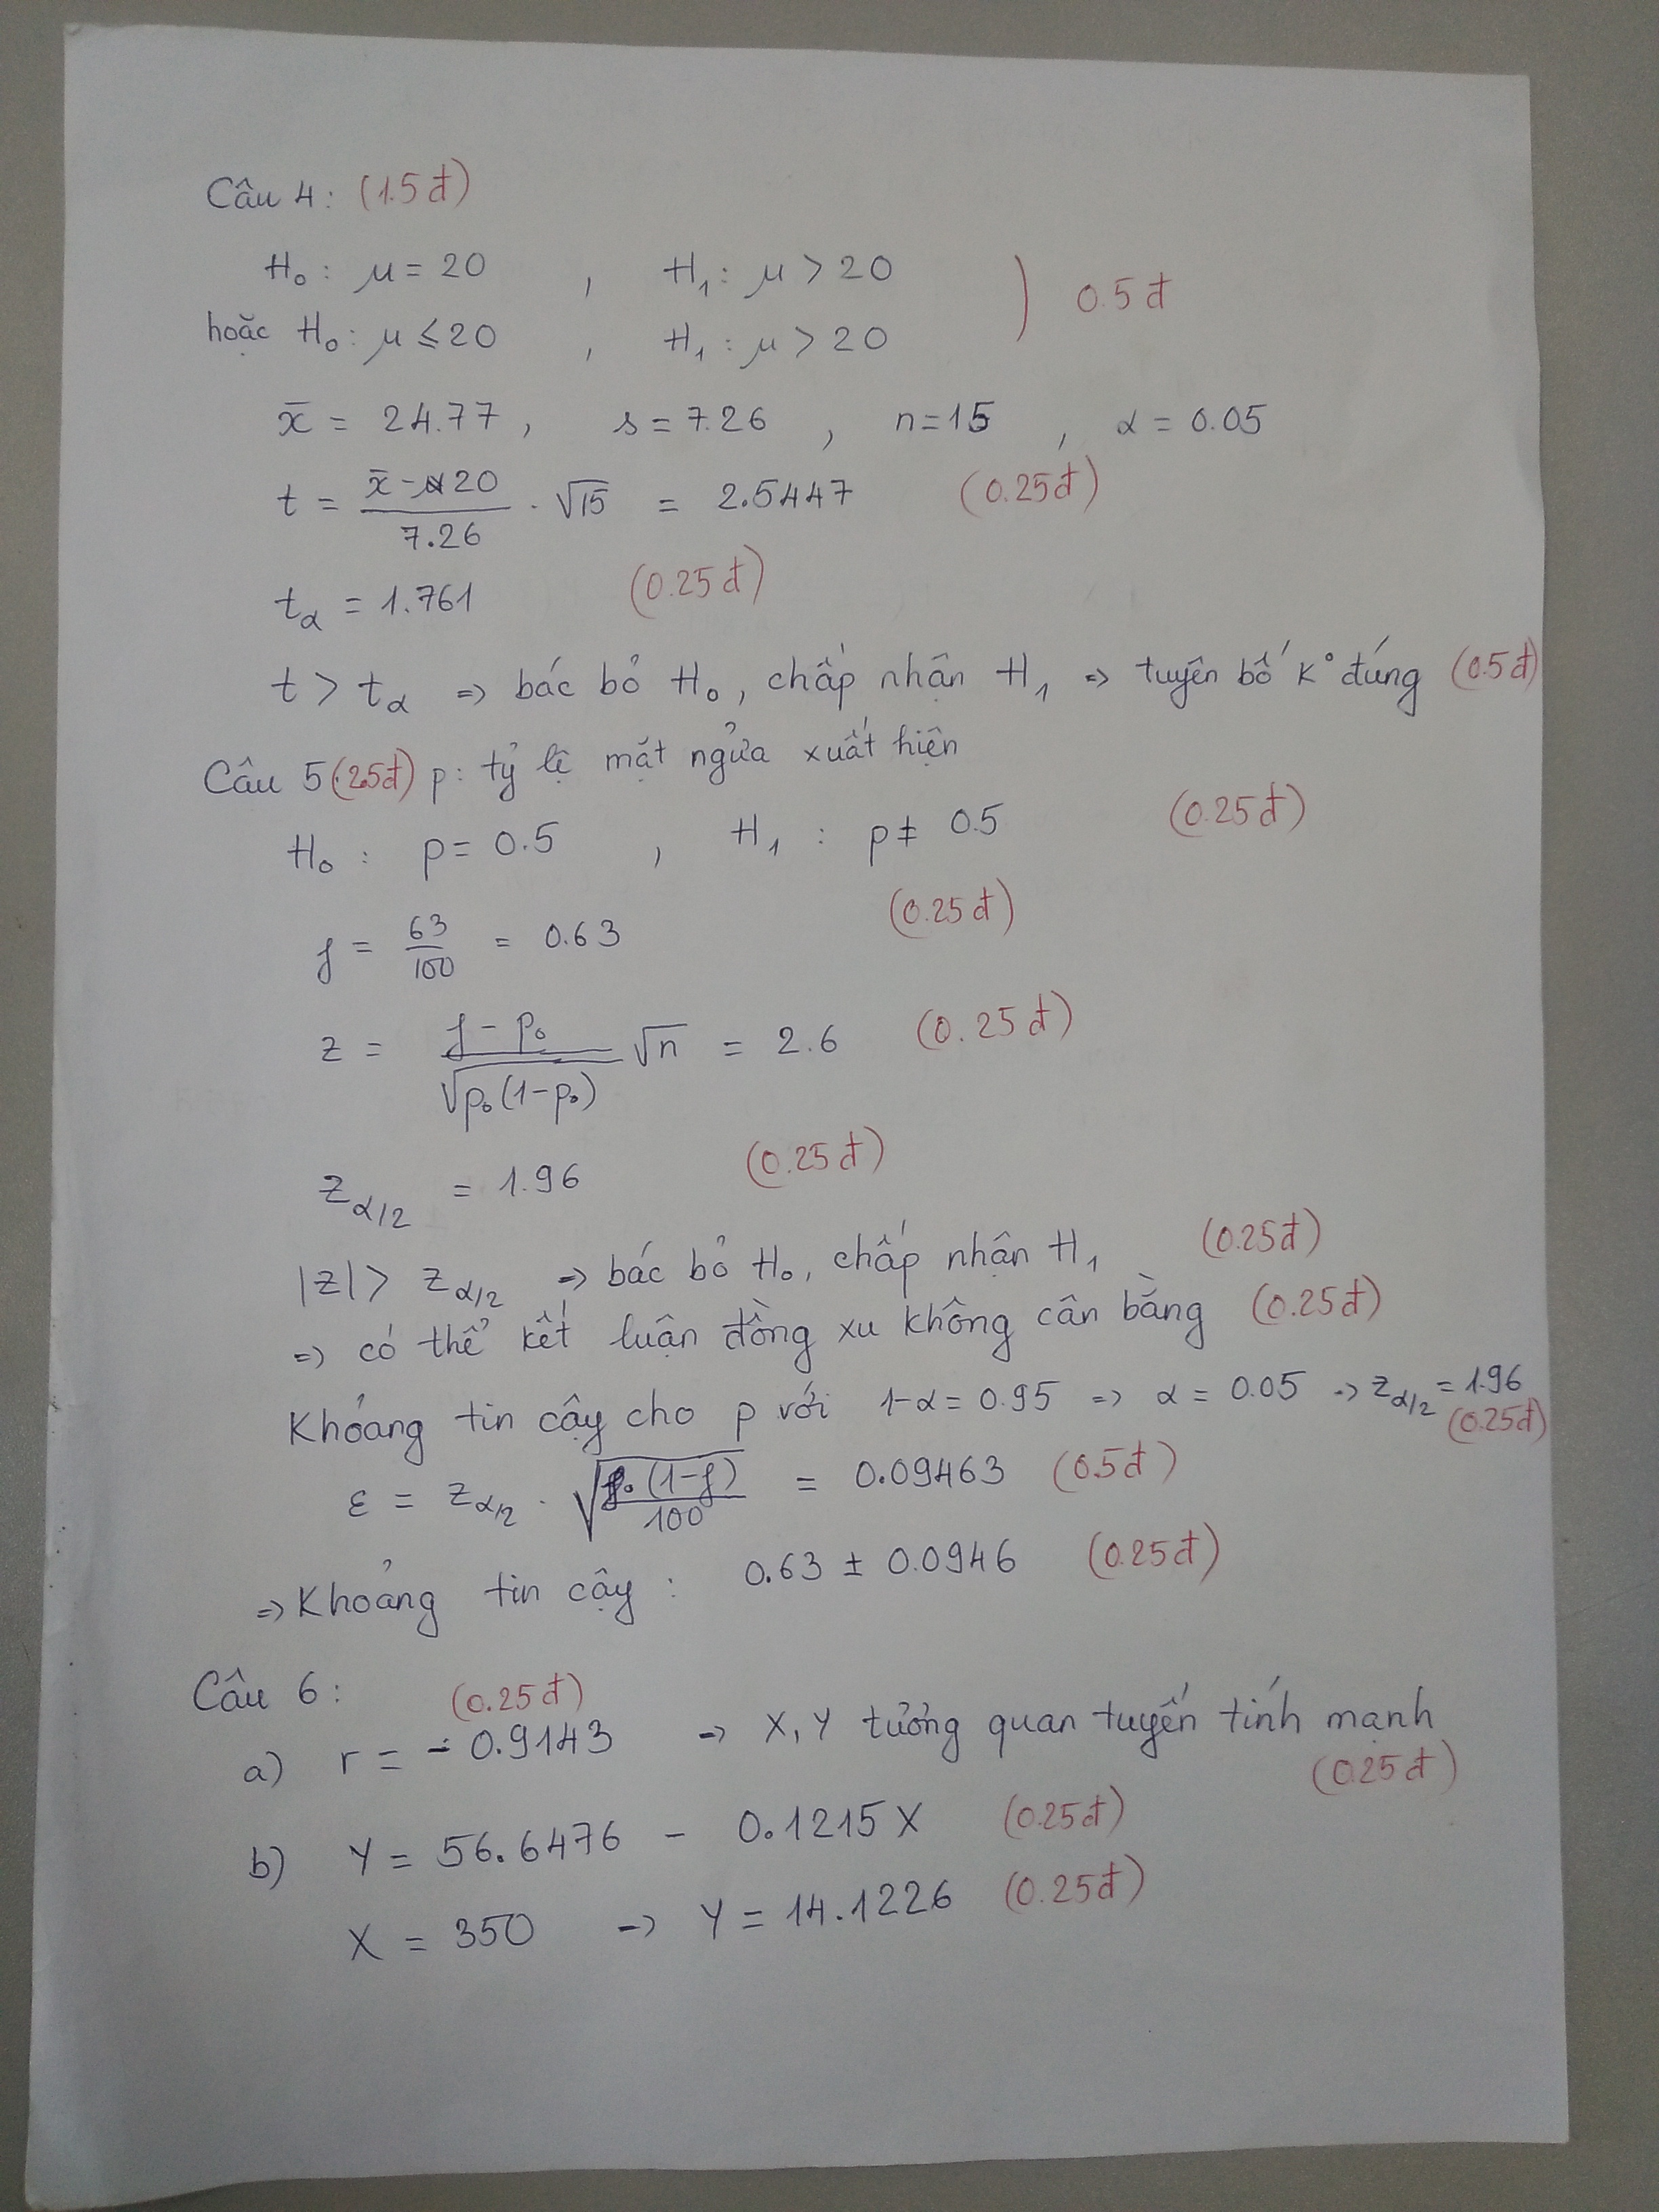 Câu 4: (1.5đ)
H₀: μ = 20 , H₁: μ > 20
hoặc H₀: μ ≤ 20 , H₁: μ > 20 ) 0.5đ
x̄ = 24.77, s = 7.26 , n=15 , α = 0.05
t = (x̄ - 20)/7.26 · √15 = 2.5447 (0.25đ)
tα = 1.761 (0.25đ)
t > tα => bác bỏ H₀, chấp nhận H₁ => tuyên bố k° đúng (0.5đ)
Câu 5 (2.5đ) p: tỷ lệ mặt ngửa xuất hiện
H₀: p = 0.5 , H₁: p ≠ 0.5 (0.25đ)
f = 63/100 = 0.63 (0.25đ)
z = (f - p₀)/√(p₀(1-p₀)) √n = 2.6 (0.25đ)
z α/2 = 1.96 (0.25đ)
|z| > z α/2 => bác bỏ H₀, chấp nhận H₁ (0.25đ)
=> có thể kết luận đồng xu không cân bằng (0.25đ)
Khoảng tin cậy cho p với 1-α = 0.95 => α = 0.05 => z α/2 = 1.96 (0.25đ)
ε = z α/2 · √(f(1-f)/100) = 0.09463 (0.5đ)
=> Khoảng tin cậy: 0.63 ± 0.0946 (0.25đ)
Câu 6:
a) r = -0.9143 (0.25đ) => X, Y tương quan tuyến tính mạnh (0.25đ)
b) Y = 56.6476 - 0.1215X (0.25đ)
X = 350 => Y = 14.1226 (0.25đ)